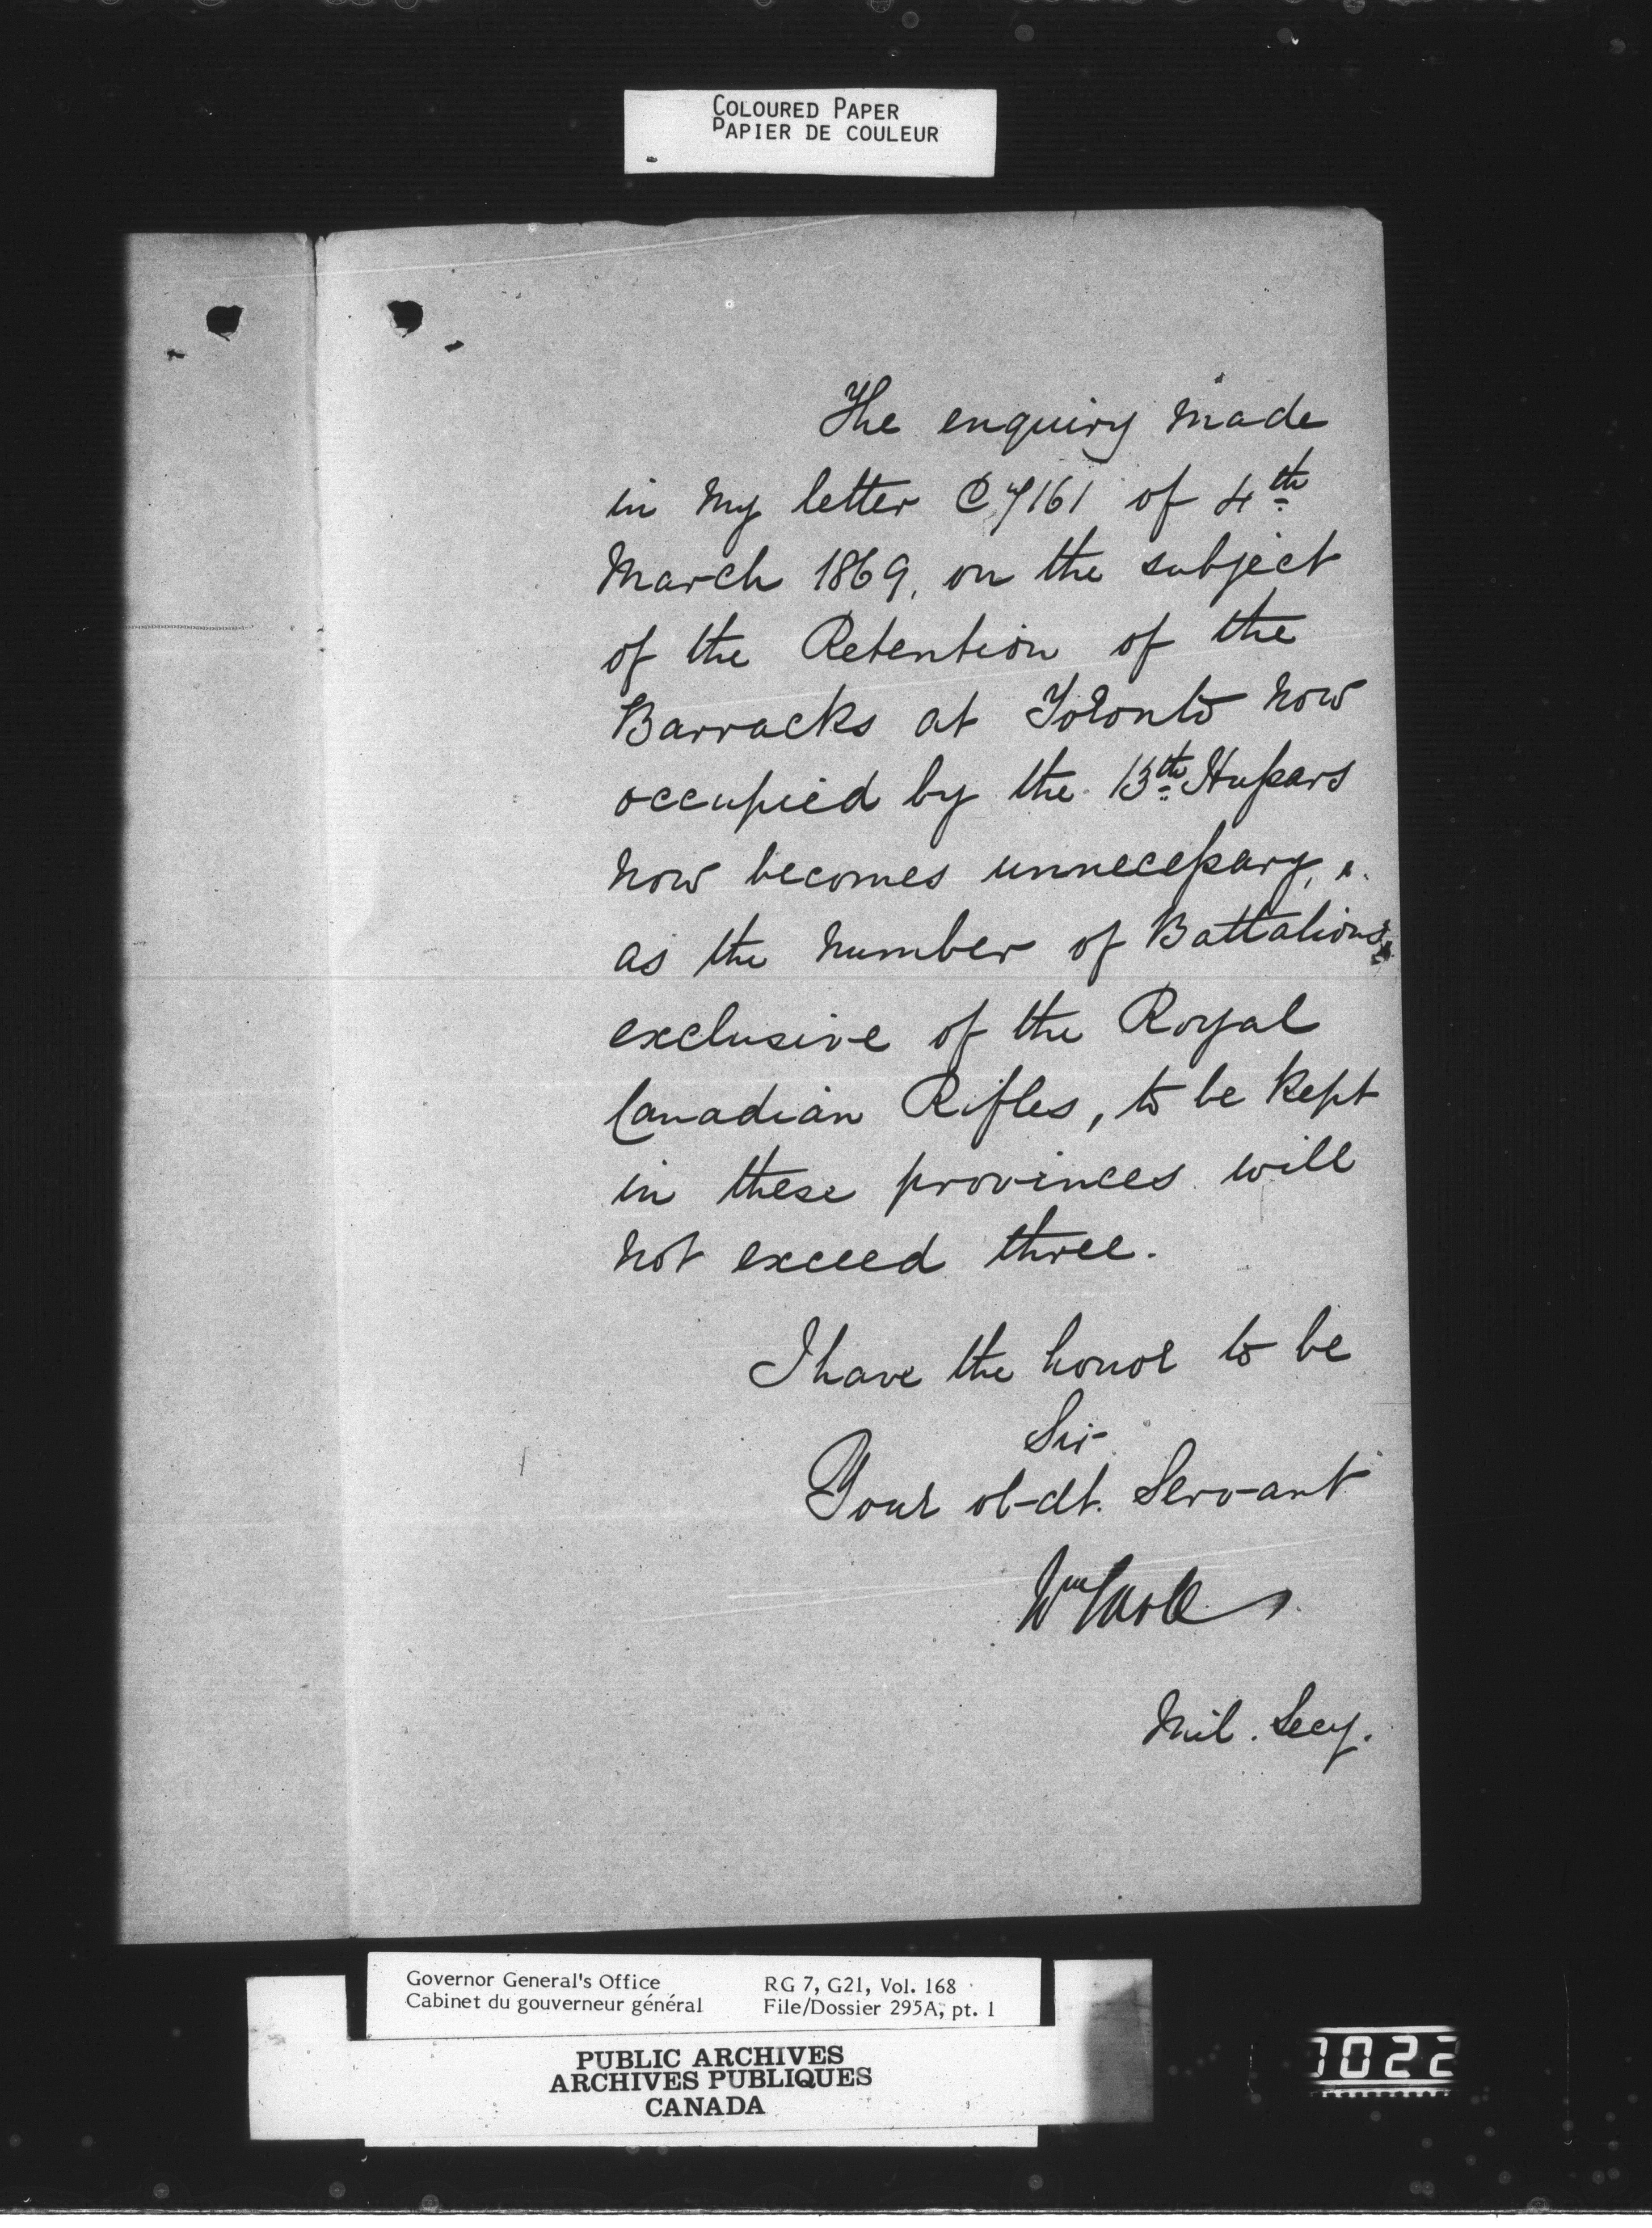 COLOURED PAPER
PAPIER DE COULEUR
The enquiry made
in my letter C/7161 of 4th
March 1869, on the subject
of the Retention of the
Barracks at Toronto now
occupied by the 13th Hussars
now becomes unnecessary,
as the number of Battalions,
exclusive of the Royal
Canadian Rifles, to be kept
in these provinces will
not exceed three.
I have the honor to be
Sir
Your obdt. Servant
Wm Earle
Mil. Secy.
Governor General's Office RG 7, G21, Vol. 168
Cabinet du gouverneur général File/Dossier 295A, pt. 1
PUBLIC ARCHIVES
ARCHIVES PUBLIQUES
CANADA
1022